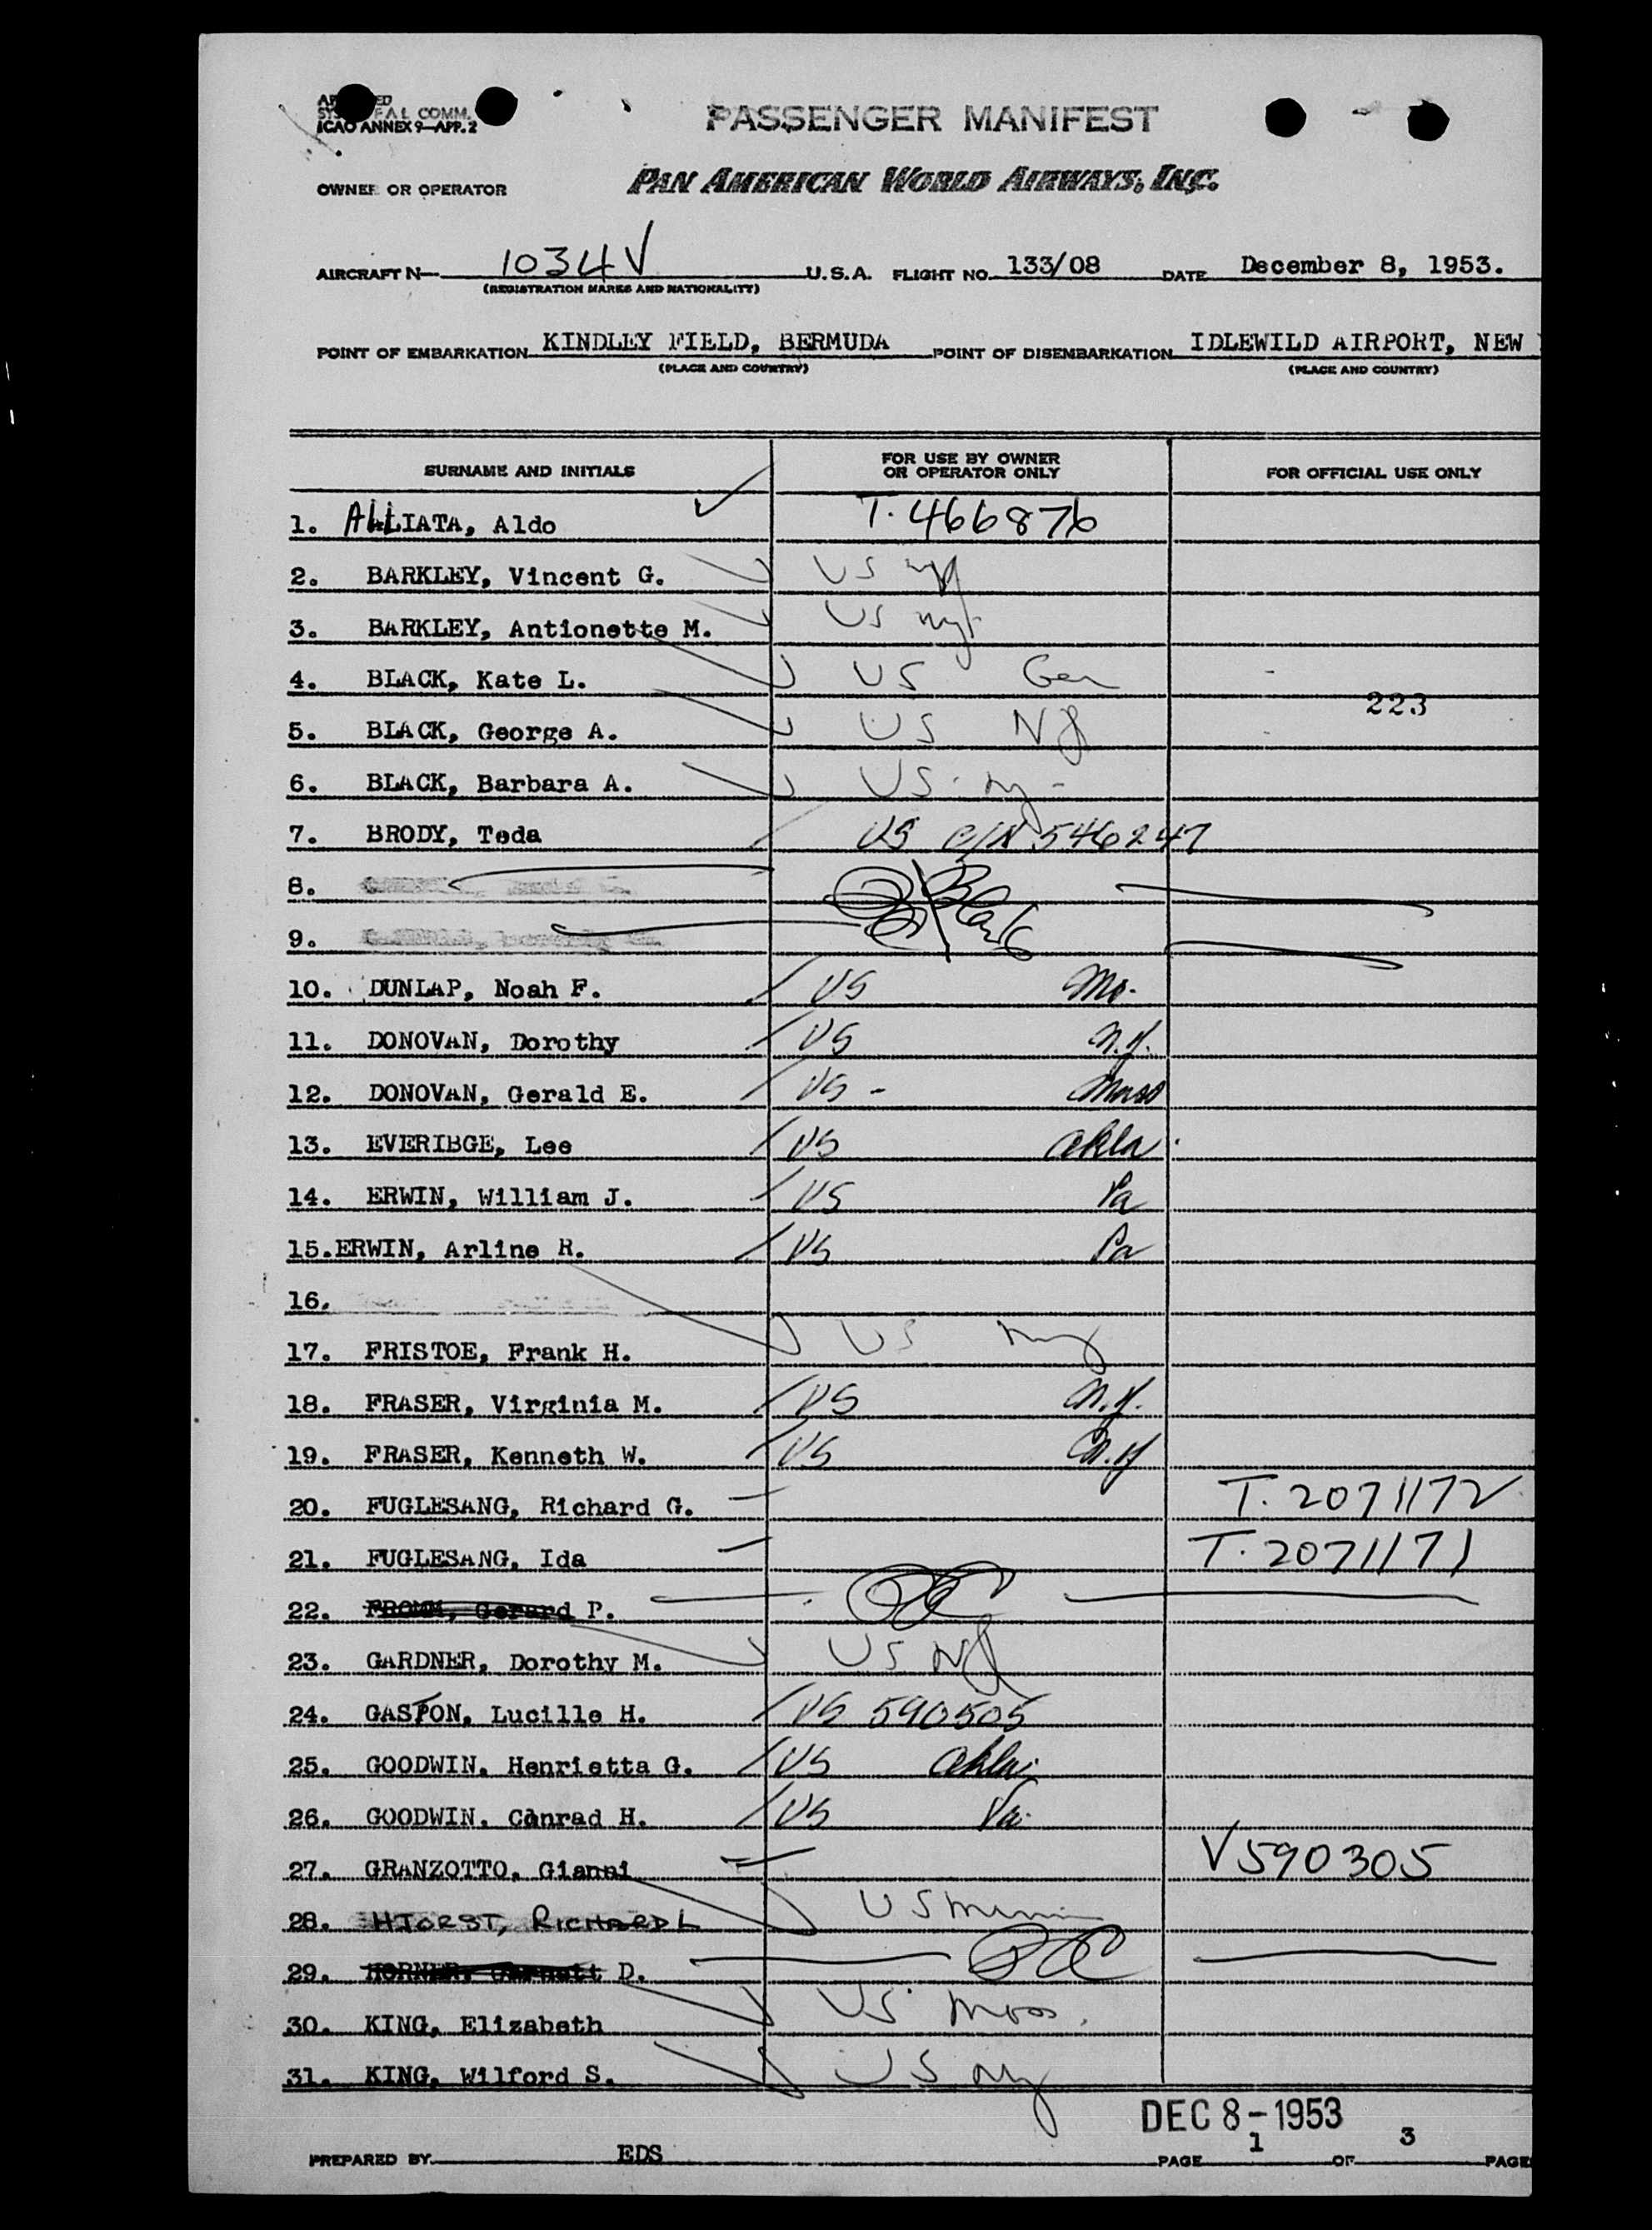 ICAO ANNEX 9—APP. 2
PASSENGER MANIFEST
OWNER OR OPERATOR PAN AMERICAN WORLD AIRWAYS, INC.
AIRCRAFT N— 1034V U.S.A. FLIGHT NO. 133/08 DATE December 8, 1953.
(REGISTRATION MARKS AND NATIONALITY)
POINT OF EMBARKATION KINDLEY FIELD, BERMUDA POINT OF DISEMBARKATION IDLEWILD AIRPORT, NEW
(PLACE AND COUNTRY) (PLACE AND COUNTRY)
SURNAME AND INITIALS FOR USE BY OWNER OR OPERATOR ONLY FOR OFFICIAL USE ONLY
1. ALLIATA, Aldo T. 466876
2. BARKLEY, Vincent G. US
3. BARKLEY, Antionette M. US
4. BLACK, Kate L. US
223
5. BLACK, George A. US NJ
6. BLACK, Barbara A. US
7. BRODY, Teda US C/N 546247
8.
9.
10. DUNLAP, Noah F. US Mo.
11. DONOVAN, Dorothy US N.Y.
12. DONOVAN, Gerald E. US - Mass
13. EVERIBGE, Lee US Okla.
14. ERWIN, William J. US Pa
15. ERWIN, Arline R. US Pa
16.
17. FRISTOE, Frank H. US
18. FRASER, Virginia M. US N.Y.
19. FRASER, Kenneth W. US N.Y
20. FUGLESANG, Richard G. T. 2071172
21. FUGLESANG, Ida T. 2071171
22. FROMM, Gerard P.
23. GARDNER, Dorothy M. US NJ
24. GASTON, Lucille H. US 590505
25. GOODWIN, Henrietta G. US Okla.
26. GOODWIN, Conrad H. US Va.
27. GRANZOTTO, Gianni V590305
28. HJORST, RICHARD L US Minn
29. HORNER, Garnett D.
30. KING, Elizabeth US Mass.
31. KING, Wilford S. US NY
DEC 8-1953
PREPARED BY EDS PAGE 1 OF 3 PAGE